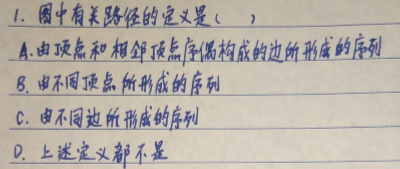 1. 图中有关路径的定义是( )
A.由顶点和相邻顶点序偶构成的边所形成的序列
B.由不同顶点所形成的序列
C.由不同边所形成的序列
D.上述定义都不是